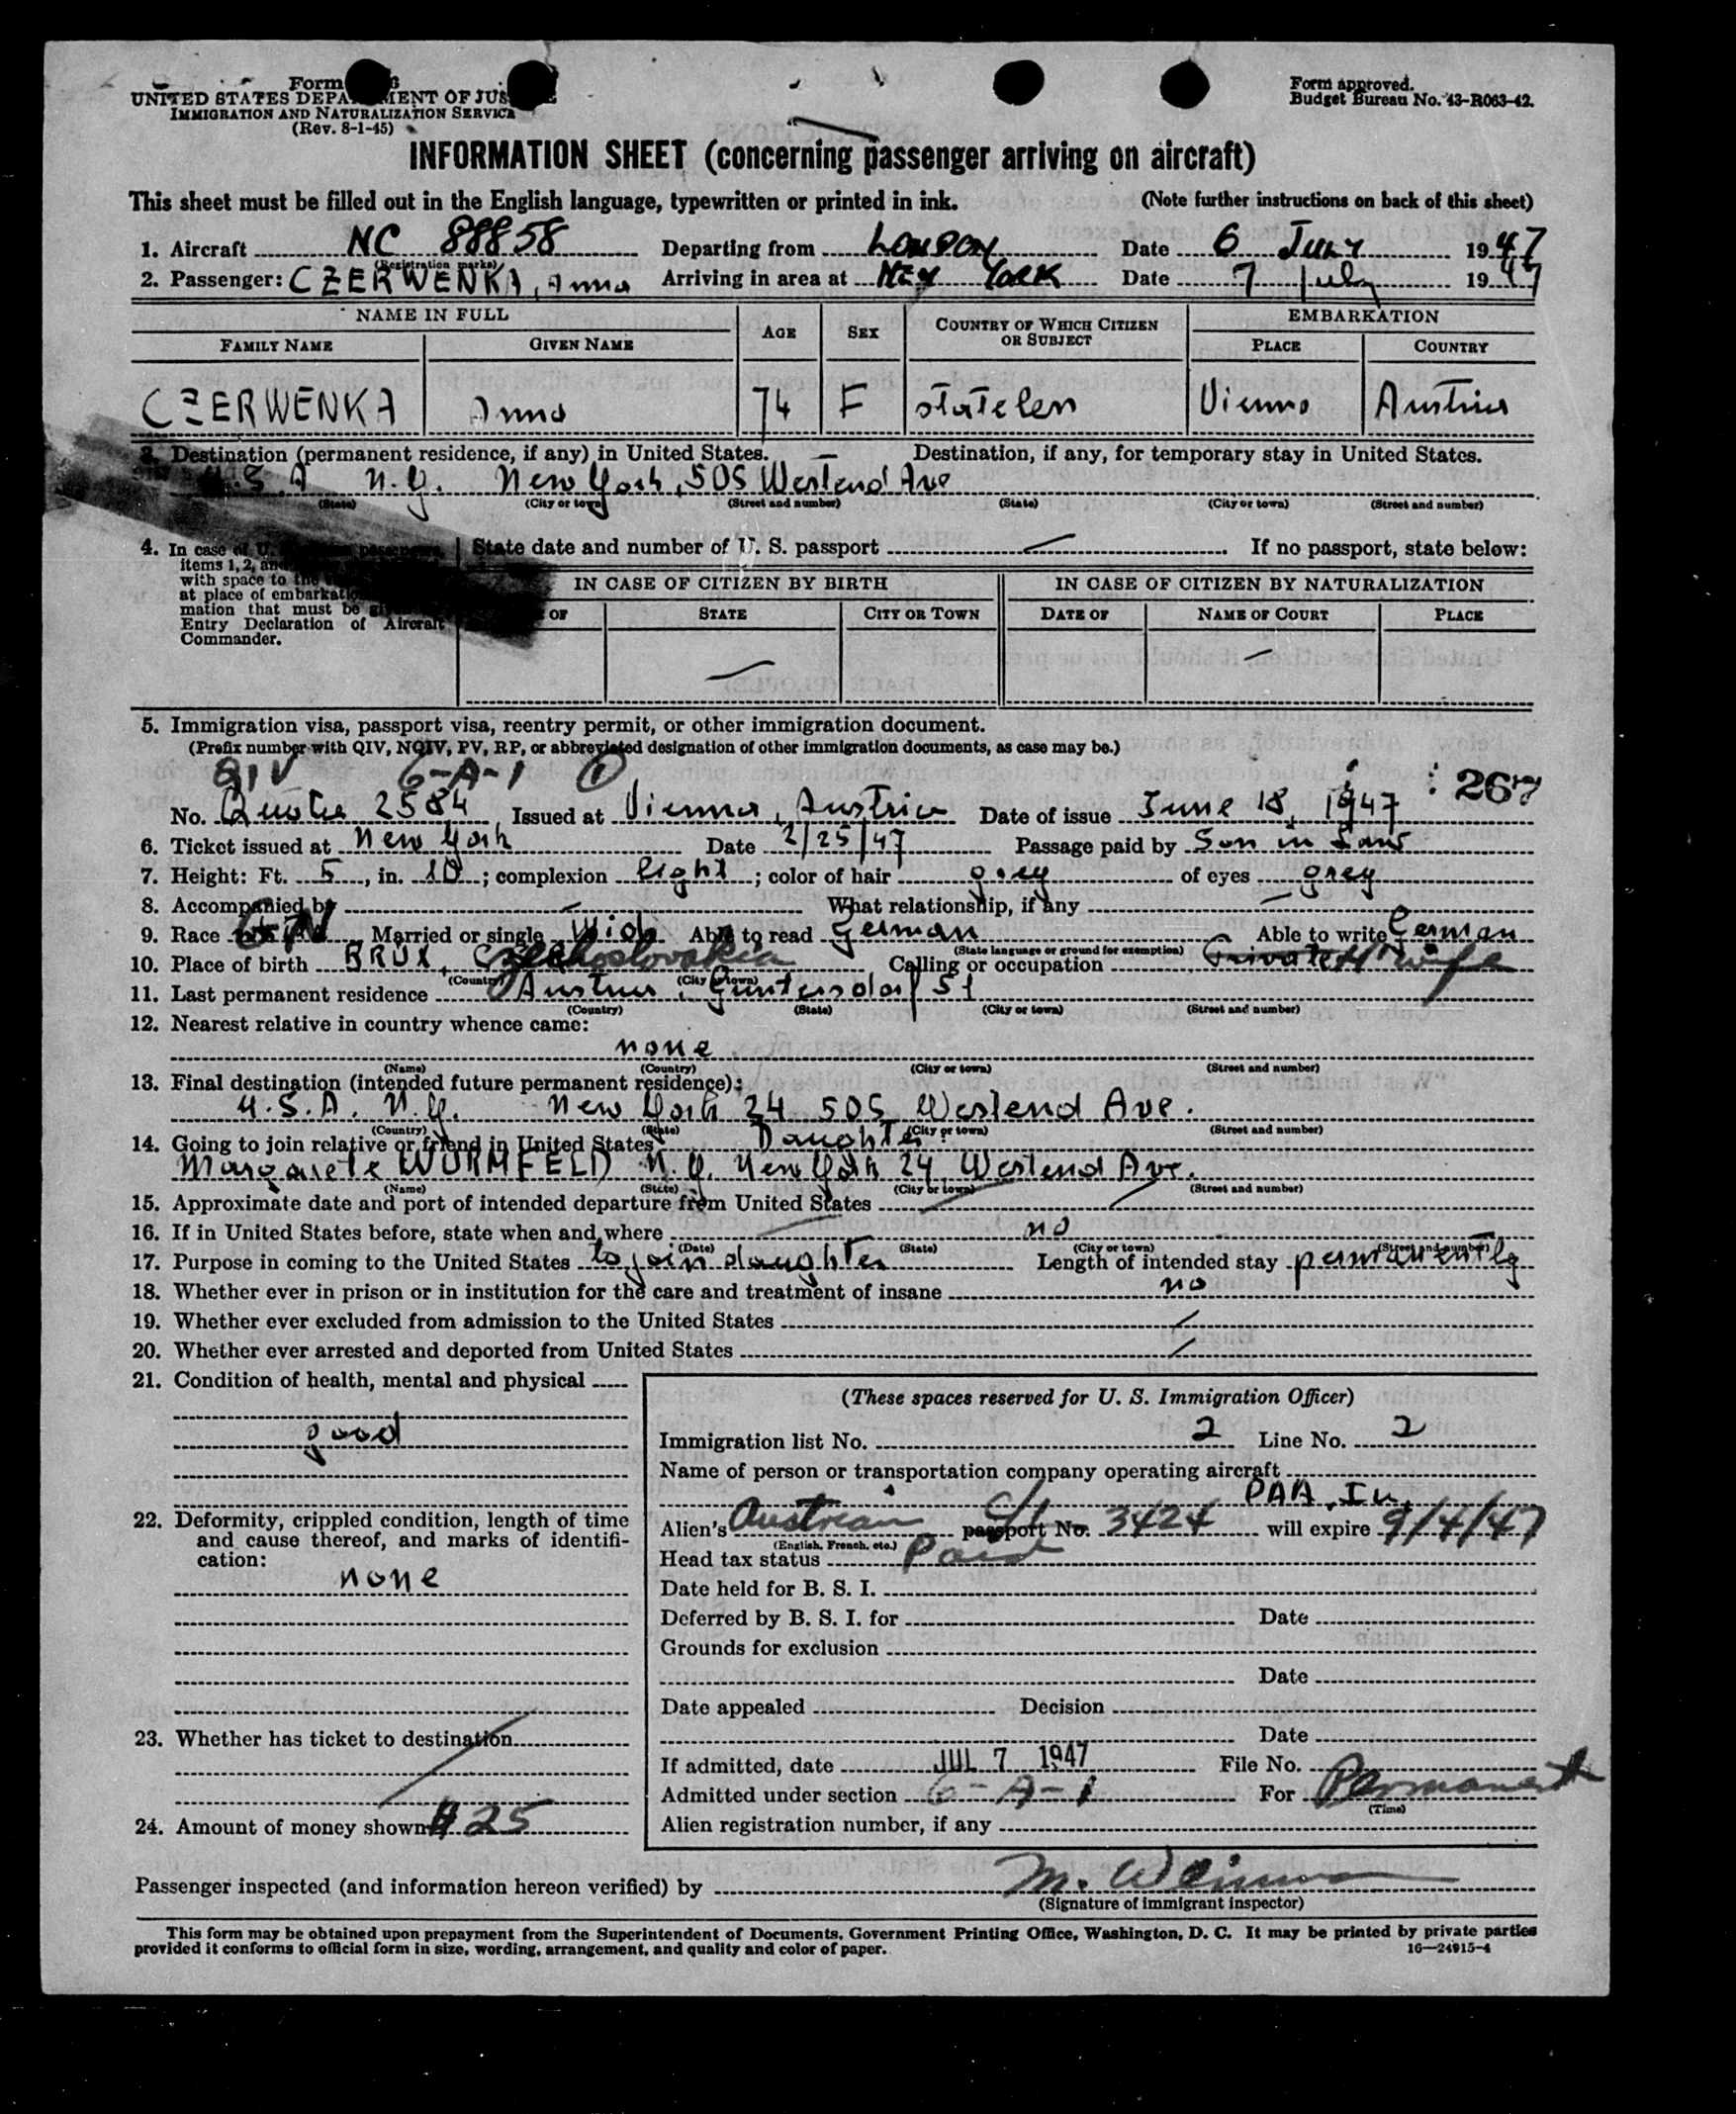 Form
UNITED STATES DEPARTMENT OF JUSTICE
IMMIGRATION AND NATURALIZATION SERVICE
(Rev. 8-1-45)
Form approved.
Budget Bureau No. 43-R063-42.
INFORMATION SHEET (concerning passenger arriving on aircraft)
This sheet must be filled out in the English language, typewritten or printed in ink. (Note further instructions on back of this sheet)
1. Aircraft NC 88858 Departing from LONDON Date 6 July 1947
(Registration marks)
2. Passenger: CZERWENKA, Anna Arriving in area at NEW YORK Date 7 July 1947
NAME IN FULL AGE SEX COUNTRY OF WHICH CITIZEN OR SUBJECT EMBARKATION
FAMILY NAME GIVEN NAME PLACE COUNTRY
CZERWENKA Anna 74 F statelen Vienna Austria
3. Destination (permanent residence, if any) in United States. — Destination, if any, for temporary stay in United States.
U.S.A N.Y. New York, 505 Westend Ave
(State) (City or town) (Street and number) (State) (City or town) (Street and number)
4. In case of U. State date and number of U. S. passport — If no passport, state below:
items 1, 2, and
with space to the
at place of embarkat
mation that must be
Entry Declaration of Aircraft
Commander.
IN CASE OF CITIZEN BY BIRTH IN CASE OF CITIZEN BY NATURALIZATION
OF STATE CITY OR TOWN DATE OF NAME OF COURT PLACE
— —
5. Immigration visa, passport visa, reentry permit, or other immigration document.
(Prefix number with QIV, NQIV, PV, RP, or abbreviated designation of other immigration documents, as case may be.)
QIV 6-A-1 1 267
No. Quota 2584, Issued at Vienna, Austria Date of issue June 18, 1947
6. Ticket issued at New York Date 2/25/47 Passage paid by Son in Law
7. Height: Ft. 5, in. 10; complexion light; color of hair grey of eyes grey
8. Accompanied by — What relationship, if any —
9. Race Married or single Wid. Able to read German Able to write German
(State language or ground for exemption)
10. Place of birth BRÜX, Czechoslovakia Calling or occupation Private H'wife
(Country) (City or town)
11. Last permanent residence Austria, Guntersdorf 51
(Country) (State) (City or town) (Street and number)
12. Nearest relative in country whence came:
none
(Name) (Country) (City or town) (Street and number)
13. Final destination (intended future permanent residence):
U.S.A. N.Y. New York 24 505 Westend Ave.
(Country) (State) (City or town) (Street and number)
14. Going to join relative or friend in United States Daughter
Margarete WURMFELD N.Y. New York 24, Westend Ave.
(Name) (State) (City or town) (Street and number)
15. Approximate date and port of intended departure from United States
16. If in United States before, state when and where no
(Date) (State) (City or town) (Street and number)
17. Purpose in coming to the United States to join daughter Length of intended stay permanently
18. Whether ever in prison or in institution for the care and treatment of insane no
19. Whether ever excluded from admission to the United States
20. Whether ever arrested and deported from United States
21. Condition of health, mental and physical
good
22. Deformity, crippled condition, length of time
and cause thereof, and marks of identifi-
cation:
none
23. Whether has ticket to destination
24. Amount of money shown $ 25
(These spaces reserved for U. S. Immigration Officer)
Immigration list No. 2 Line No. 2
Name of person or transportation company operating aircraft
PAA, In.
Alien's Austrian passport No. 3424 will expire 9/4/47
(English, French, etc.)
Head tax status Paid
Date held for B. S. I.
Deferred by B. S. I. for Date
Grounds for exclusion
Date
Date appealed Decision
Date
If admitted, date JUL 7 1947 File No.
Admitted under section 6-A-1 For Permanent
(Time)
Alien registration number, if any
Passenger inspected (and information hereon verified) by
(Signature of immigrant inspector)
This form may be obtained upon prepayment from the Superintendent of Documents, Government Printing Office, Washington, D. C. It may be printed by private parties
provided it conforms to official form in size, wording, arrangement, and quality and color of paper. 16—24915-4